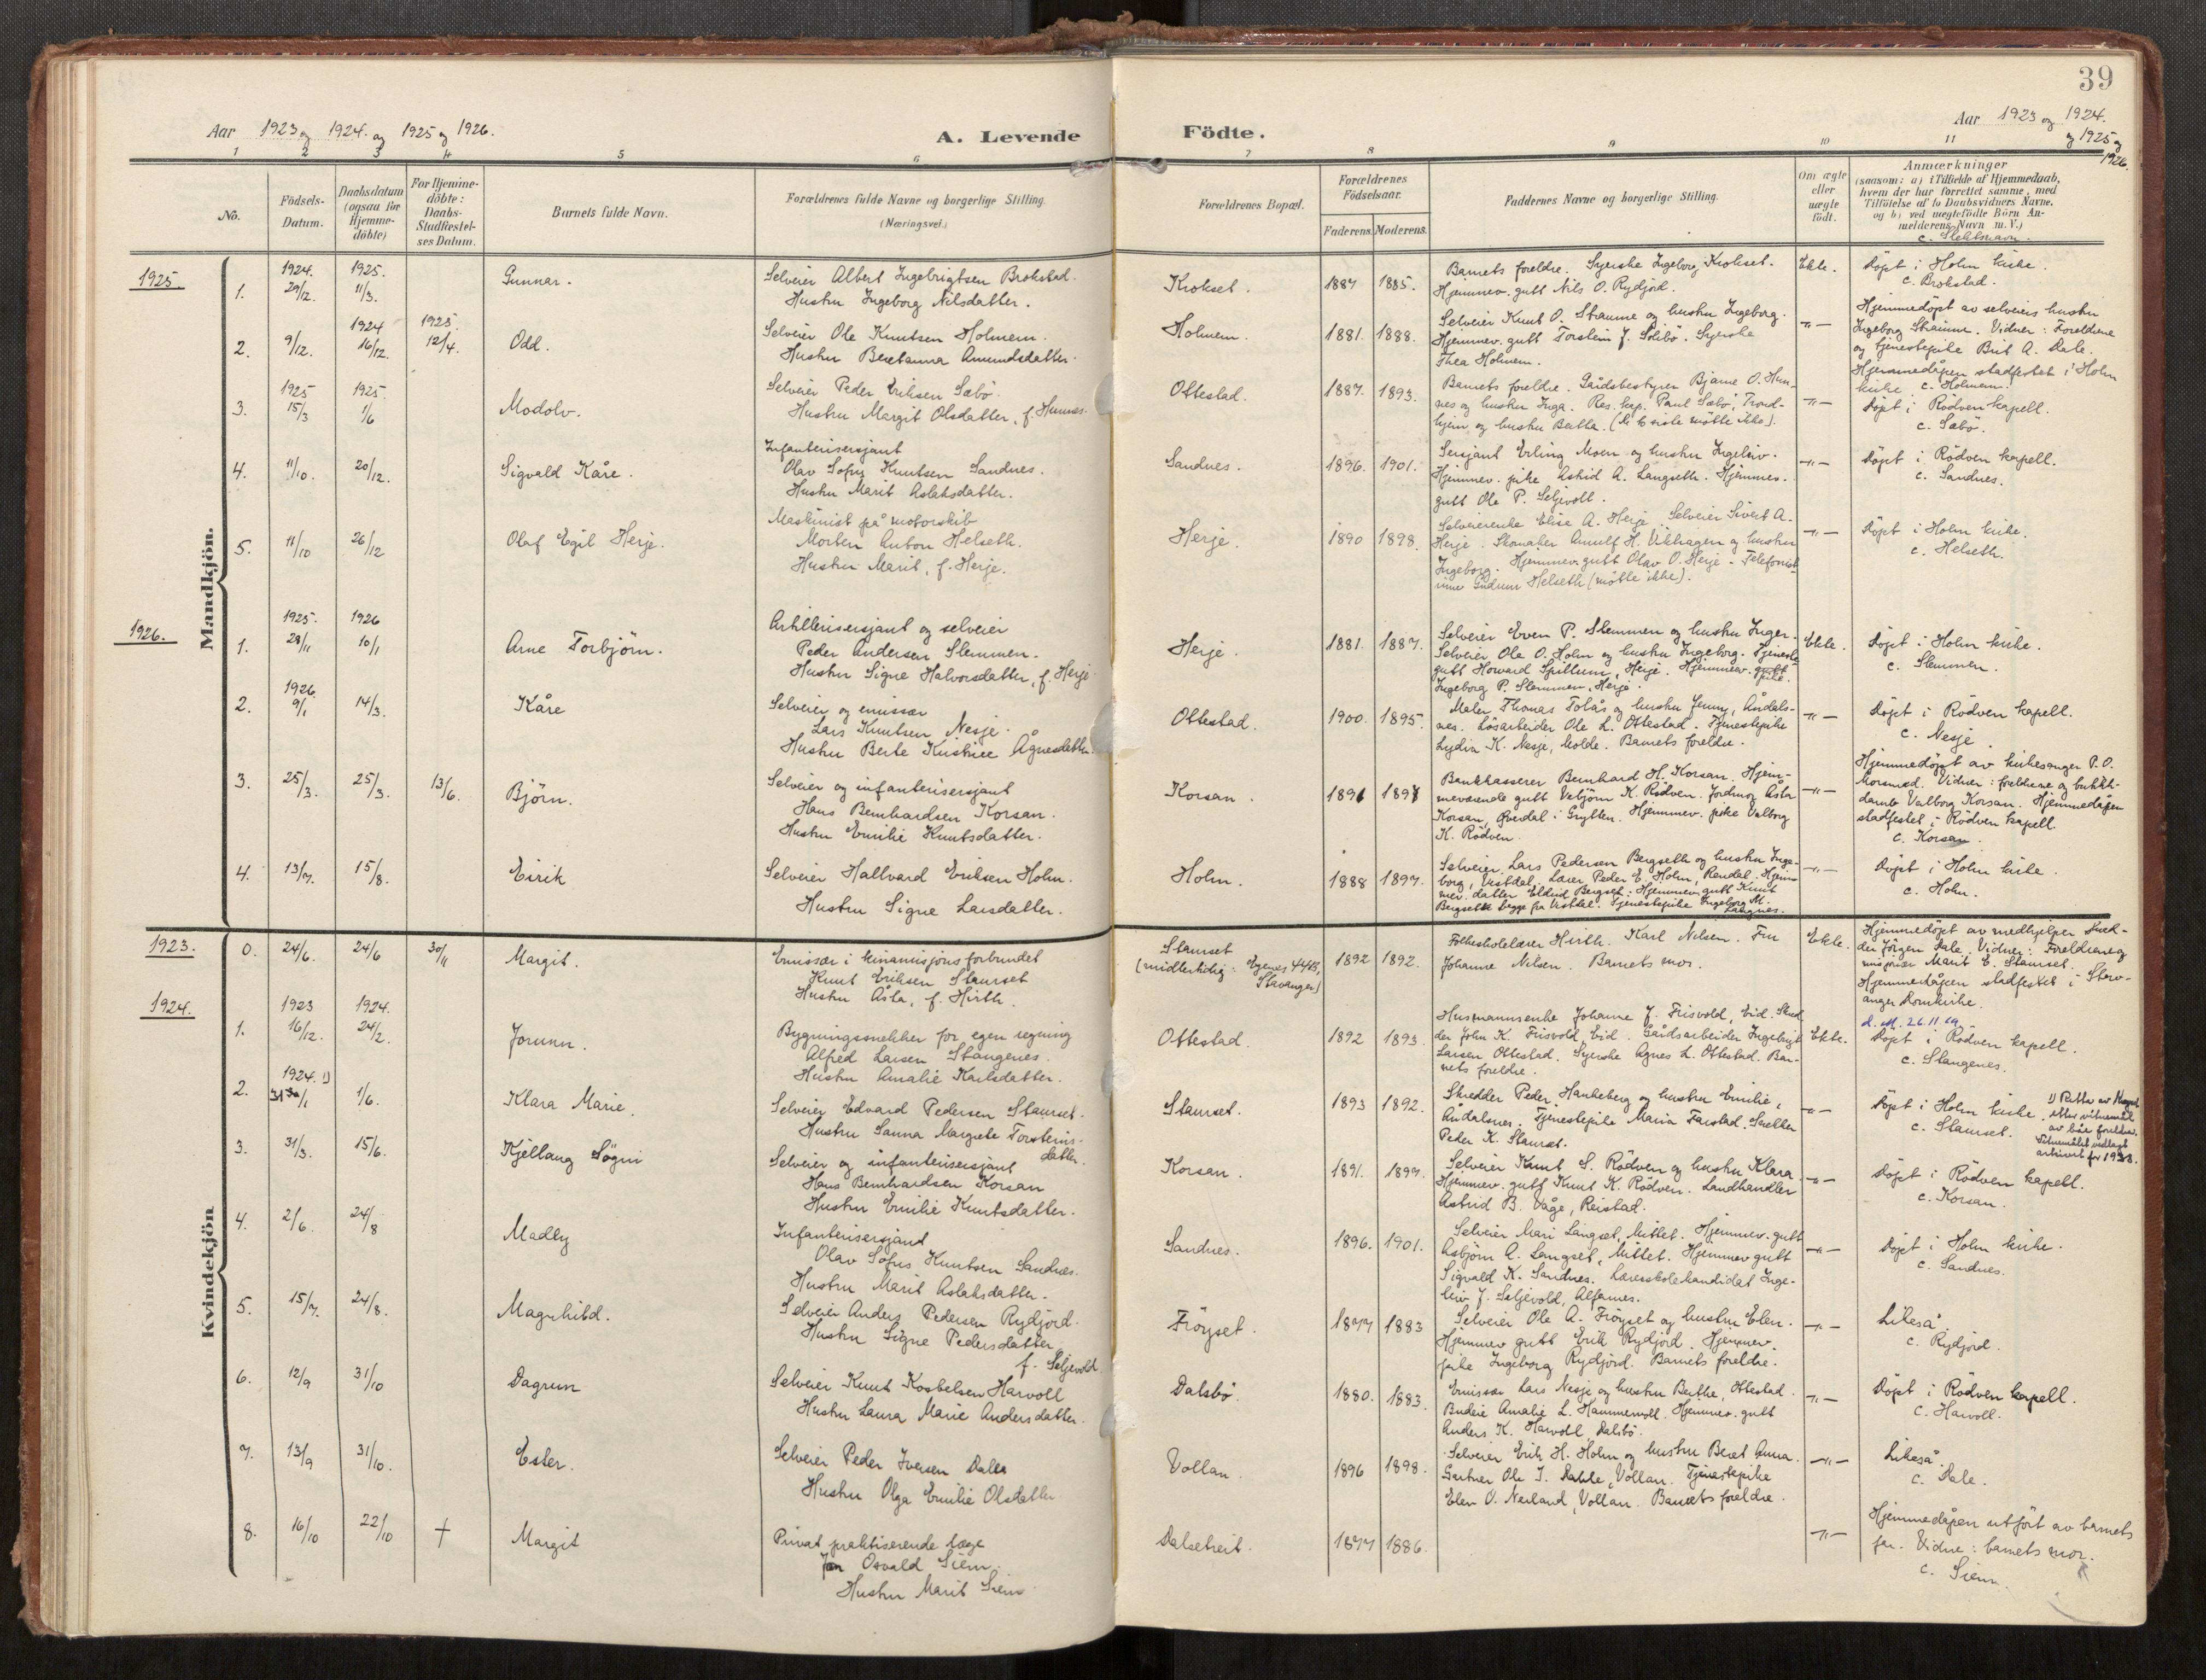 39
Aar 1923 og 1924. og 1925 og 1926.
A. Levende Födte.
Aar 1923 og 1924. og 1925 og 1926.
1 2 3 4 5 6 7 8 9 10 11
No.
Födsels-Datum.
Daabsdatum (ogsaa for Hjemme-döbte)
For Hjemme-döbte: Daabs-Stadfæstel-ses Datum.
Barnets fulde Navn.
Forældrenes fulde Navne og borgerlige Stilling. (Næringsvei.)
Forældrenes Bopæl.
Forældrenes Födselsaar.
Faderens. Moderens.
Faddernes Navne og borgerlige Stilling.
Om ægte eller uægte födt.
Anmærkninger
(saasom: a) i Tilfælde af Hjemmedaab,
hvem der har forrettet samme, med
Tilföielse af to Daabsvidners Navne.
og b) ved uægtefödte Börn An-
melderens Navn m. V.)
c. Slektsnavn.
Mandkjön.
1925.
1. 1924. 29/12. 1925. 11/3. Gunnar.
Selveier Albert Ingebrigtsen Brokstad.
Hustru Ingeborg Nilsdatter.
Krokset. 1887 1885.
Barnets foreldre. Syerske Ingeborg Krokset.
Hjemmev. gutt Nils O. Rydjord.
Ekte.
Döpt i Holm kirke.
c. Brokstad.
2. 9/12. 1924 16/12. 1925. 12/4. Odd.
Selveier Ole Knutsen Holmem.
Hustru Beretanna Amundsdatter.
Holmem. 1881. 1888.
Selveier Knut O. Straume og hustru Ingeborg.
Hjemmev. gutt Torstein J. Solibö. Syerske
Thea Holmem.
-"-
Hjemmedöpt av selveiers hustru
Ingeborg Straume. Vidner: Foreldrene
og tjenestepike Brit A. Dale.
Hjemmedåpen stadfestet i Holm
kirke. c. Holmem.
3. 1925 15/3 1925. 1/6 Modolv.
Selveier Peder Eriksen Sæbö.
Hustru Margit Olsdatter, f. Hunnes.
Ottestad. 1887. 1893.
Barnets foreldre. Gårdsbestyrer Bjarne O. Hun-
nes og hustru Inga. Res. kap. Paul Sæbö, Trond-
hjem og hustru Bertha. (De 2 siste mötte ikke).
-"-
Döpt i Rödven kapell.
c. Sæbö.
4. 11/10. 20/12. Sigvald Kåre.
Infanterisersjant
Olav Sofus Knutsen Sandnes.
Hustru Marit Aslaksdatter.
Sandnes. 1896. 1901.
Sersjant Erling Moen og hustru Ingeleiv.
Hjemmev. pike Astrid A. Langseth. Hjemmev.
gutt Ole P. Seljevoll.
-"-
Döpt i Rödven kapell.
c. Sandnes.
5. 11/10 26/12 Olaf Egil Herje.
Maskinist på motorskib
Morten Anton Helseth.
Hustru Marit, f. Herje.
Herje. 1890 1898.
Selveierenke Elise A. Herje. Selveier Sivert A.
Herje. Skomaker Arnulf H. Vikhagen og hustru
Ingeborg. Hjemmev. gutt Olav O. Herje. Telefonist-
inne Gudrun Helseth (mötte ikke).
-"-
Döpt i Holm kirke.
c. Helseth.
1926.
1. 1925. 28/11 1926 10/1 Arne Torbjörn.
Artillerisersjant og selveier
Peder Andersen Slemmen.
Hustru Signe Halvorsdatter, f. Herje.
Herje. 1881. 1887.
Selveier Even P. Slemmen og hustru Inger.
Selveier Ole O. Holm og hustru Ingeborg. Tjeneste-
gutt Howard Spillum, Herje. Hjemmev. pike
Ingeborg P. Slemmen, Herje.
Ekte.
Döpt i Holm kirke.
c. Slemmen.
2. 1926. 9/1 14/3. Kåre
Selveier og emissær
Lars Knutsen Nesje.
Hustru Berte Kristine Ågnesdatter.
Ottestad. 1900. 1895.
Maler Thomas Tobås og hustru Jenny, Åndals-
nes. Lösarbeider Ole L. Ottestad. Tjenestepike
Lydia K. Nesje, Molde. Barnets foreldre.
-"-
Döpt i Rödven kapell.
c. Nesje.
3. 25/3. 25/3. 13/6. Björn.
Selveier og infanterisersjant
Hans Bernhardsen Korsan.
Hustru Emilie Knutsdatter.
Korsan. 1891 1897
Bankkasserer Bernhard H. Korsan. Hjem-
meværende gutt Vebjörn K. Rödven. Jordmor Åsta
Korsan, Överdal i Grytten. Hjemmev. pike Valborg
K. Rödven.
-"-
Hjemmedöpt av kirkesanger P. O.
Morsund. Vidner: foreldrene og butikk-
dame Valborg Korsan. Hjemmedåpen
stadfestet i Rödven kapell.
c. Korsan.
4. 13/7. 15/8. Eirik
Selveier Hallvard Eriksen Holm.
Hustru Signe Larsdatter.
Holm. 1888 1897.
Selveier Lars Pedersen Bergseth og hustru Inge-
borg, Vistdal. Lærer Peder E. Holm, Rendal. Hjem-
mev. datter Eldrid Bergset. Hjemmev. gutt Knut
Bergseth begge fra Vistdal. Tjenestepike Ingeborg M.
Langnes.
-"-
Döpt i Holm kirke.
c. Holm.
Kvindekjön
1923. 0. 24/6. 24/6 30/11 Margit.
Emissær i kinamisjonsforbundet
Knut Eriksen Staurset
Hustru Åsta, f. Hirth.
Staurset
(midlertidig: Egenes 44B, Stavanger)
1892 1892.
Folkeskolelærer Hirth. Karl Nilsen. Fru
Johanne Nilsen. Barnets mor.
Ekte.
Hjemmedöpt av medhjelper Skred-
der Jörgen Dale. Vidner: Foreldrene og
misjonær Marit E. Staurset.
Hjemmedåpen stadfestet i Stav-
anger Domkirke.
d. att. 26.11.69
1924.
1. 1923 16/12. 1924. 24/2. Jorunn.
Bygningssnekker for egen regning
Alfred Larsen Stangenes.
Hustru Amalie Karlsdatter.
Ottestad. 1892 1893.
Husmannsenke Johanne J. Frisvold, Eid. Skred-
der John K. Frisvold, Eid. Gårdsarbeider Ingebrigt
Larsen Ottestad. Syerske Agnes L. Ottestad. Bar-
nets foreldre.
Ekte.
Döpt i Rödven kapell.
c. Stangenes.
2. 1924. 1) 31 30/1 1/6. Klara Marie.
Selveier Edvard Pedersen Staurset.
Hustru Sanna Margrete Torsteins-
datter.
Staurset. 1893 1892.
Skredder Peder Hankeberg og hustru Emilie,
Åndalsnes. Tjenestepike Maria Farstad. Snekker
Peder K. Staurset.
-"-
Döpt i Holm kirke.
c. Staurset.
1) Retta av
etter vitnemål
av båe foreldra.
Vitnemålet vedlagt
arkivet for 1938.
3. 31/3. 15/6. Kjellaug Sögni
Selveier og infanterisersjant
Hans Bernhardsen Korsan
Hustru Emilie Knutsdatter.
Korsan. 1891. 1897.
Selveier Knut S. Rödven og hustru Klara.
Hjemmev. gutt Knut K. Rödven. Landhandler
Astrid B. Våge, Reistad.
-"-
Döpt i Rödven kapell.
c. Korsan.
4. 2/6. 24/8 Madly
Infanterisersjant
Olav Sofus Knutsen Sandnes.
Hustru Marit Aslaksdatter.
Sandnes. 1896. 1901.
Selveier Mari Langset, Mittet. Hjemmev. gutt
Asbjörn A. Langset, Mittet. Hjemmev gutt
Sigvald K. Sandnes. Lærerskolekandidat Inge-
leiv J. Seljevold, Alfarnes.
-"-
Döpt i Holm kirke.
c. Sandnes.
5. 15/7. 24/8. Magnhild.
Selveier Anders Pedersen Rydjord.
Hustru Signe Pedersdatter
f. Seljevold.
Fröyset. 1877 1883
Selveier Ole A. Fröyset og hustru Elen.
Hjemmev gutt Erik Rydjord. Hjemmev.
pike Ingeborg Rydjord. Barnets foreldre.
-"-
Likeså.
c. Rydjord.
6. 12/9 31/10 Dagrun
Selveier Knut Kosbelsen Harvoll
Hustru Laura Marie Andersdatter.
Dalsbö. 1880. 1883.
Emissær Lars Nesje og hustru Berthe, Ottestad.
Budeie Amalie L. Hammervoll. Hjemmev. gutt
Anders K. Harvoll, Dalsbö.
-"-
Döpt i Rödven kapell.
c. Harvoll.
7. 13/9 31/10. Ester.
Selveier Peder Iversen Dale
Hustru Olga Emilie Olsdatter
Vollan. 1896 1898.
Selveier Erik H. Holm og hustru Beret Anna.
Gartner Ole I. Dahle, Vollan. Tjenestepike
Elen O. Nerland, Vollan. Barnets foreldre.
-"-
Likeså.
c. Dale.
8. 16/10 22/10 † Margit
Privat praktiserende læge
Jon Osvald Siem.
Hustru Marit Siem
Dalsetreit. 1877 1886.
-"-
Hjemmedåpen utfört av barnets
far. Vidne: barnets mor.
c. Siem.